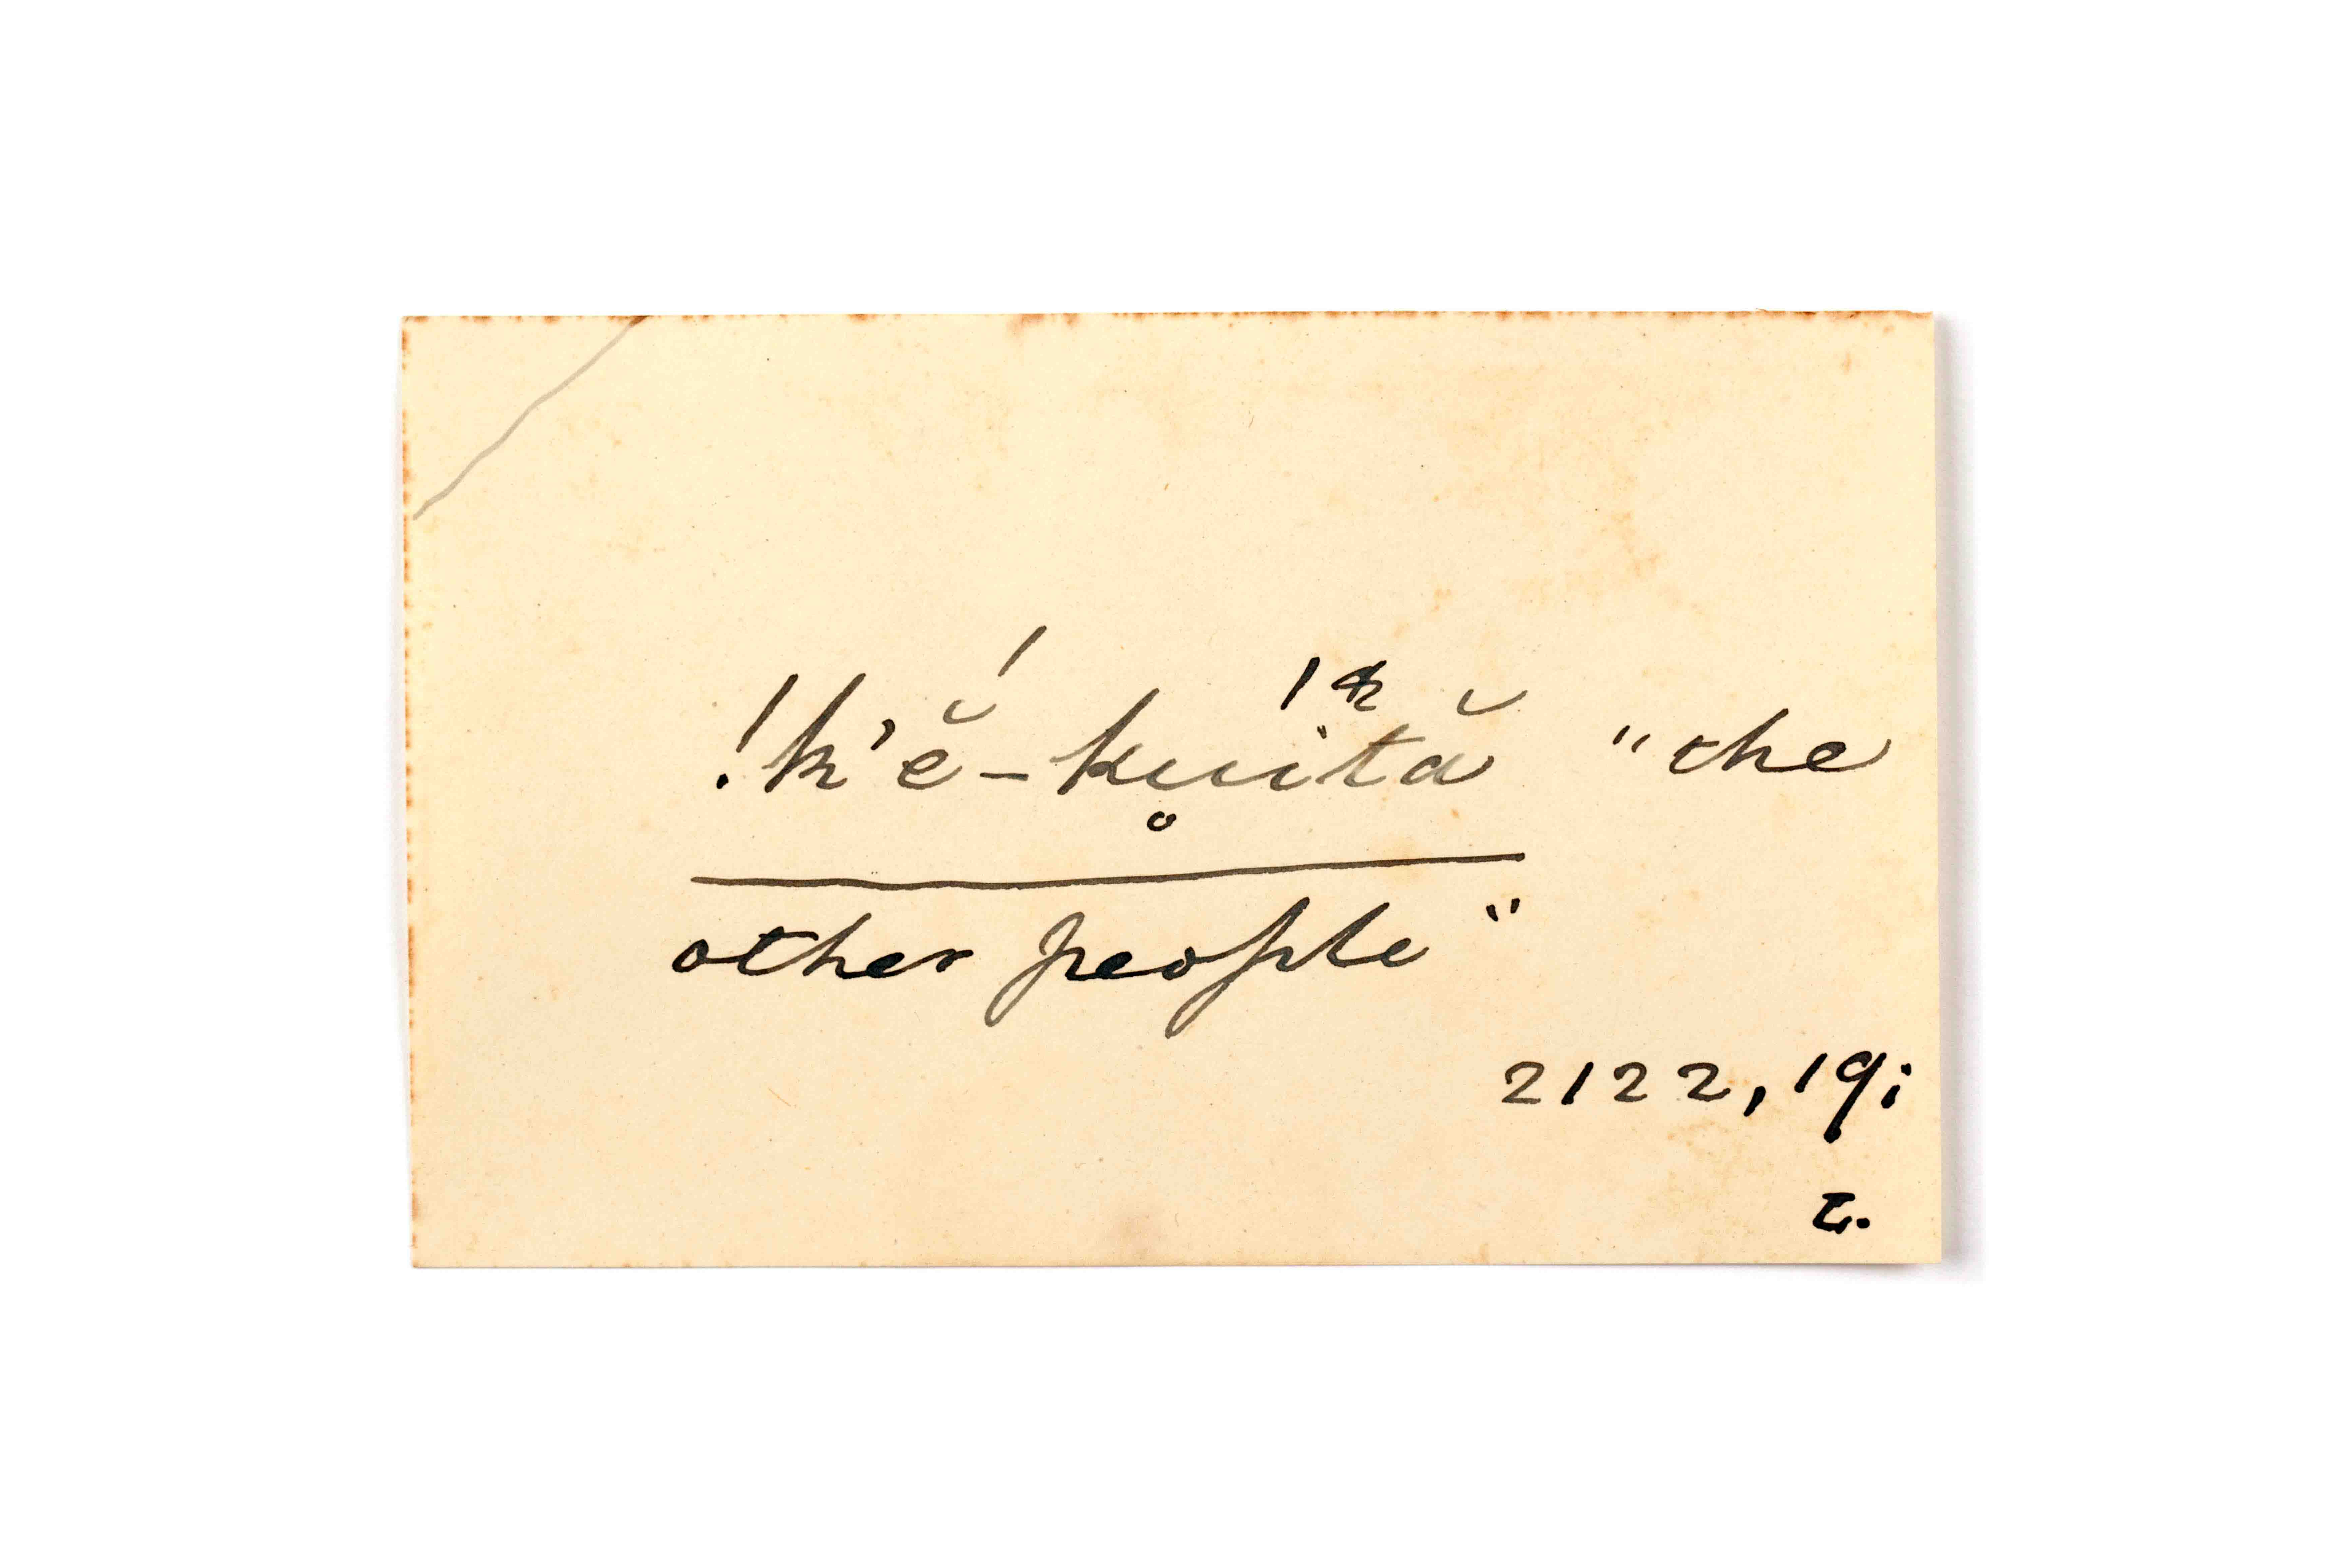 !k'ĕ́-ku̥ítă "the
other people"
2122, 19;
L.